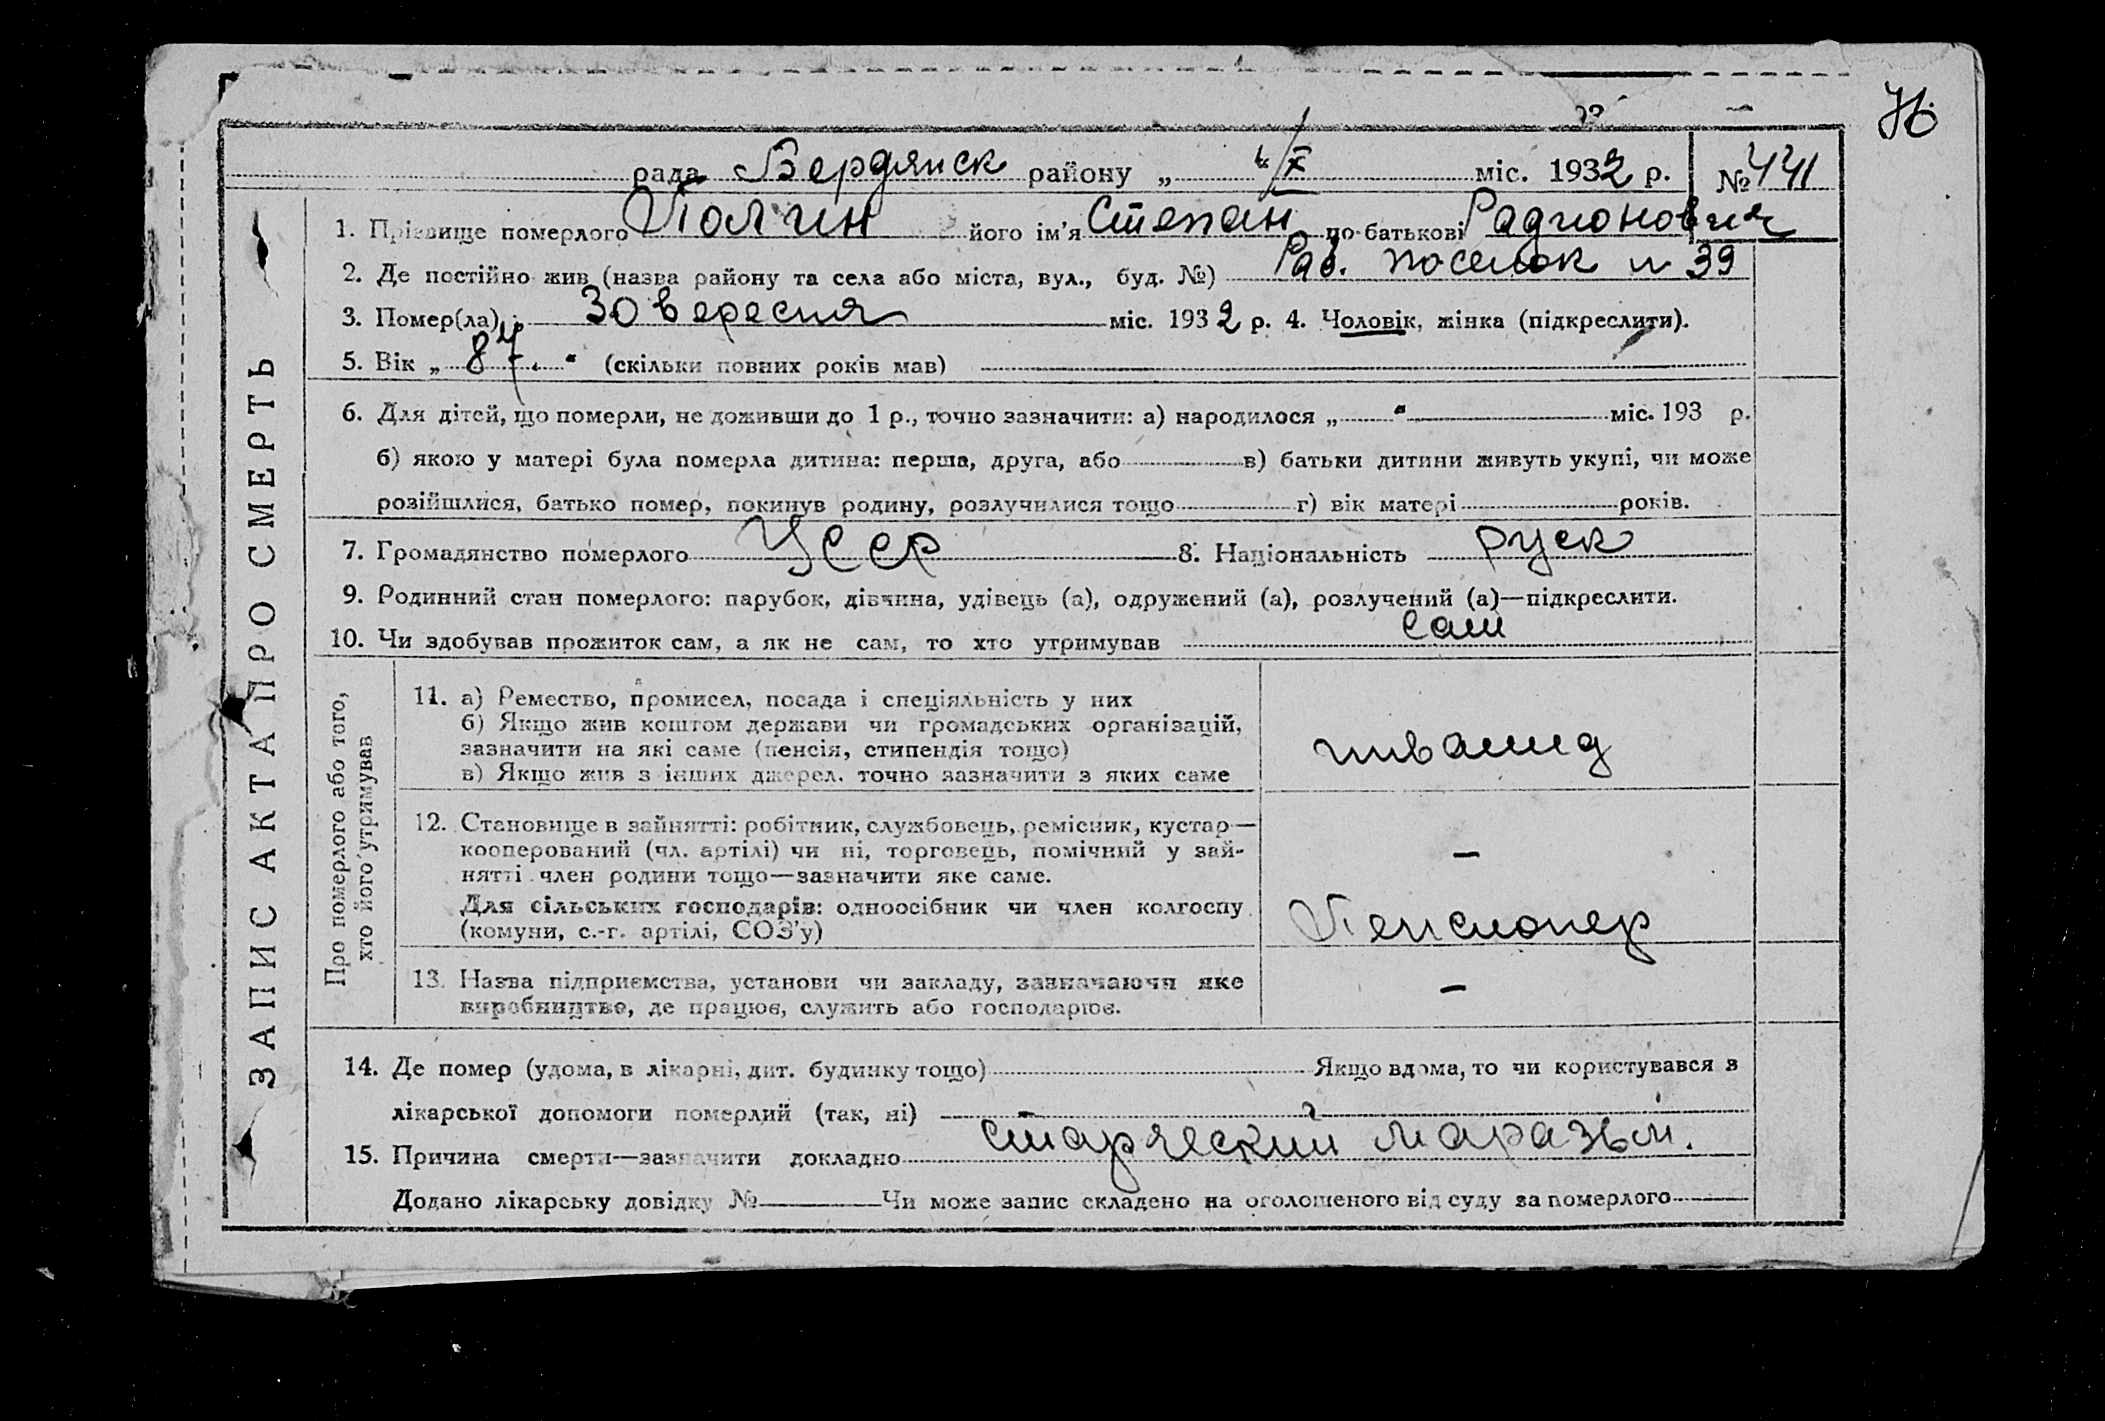 76
рада Бердянск району „ 4/X міс. 1932 р. № 441
1. Прізвище померлого Полгин його ім'я Степан по-батькові Радионович
2. Де постійно жив (назва району та села або міста, вул., буд. №) Раб. поселок № 39
3. Помер(ла) 30 вересня міс. 1932 р. 4. Чоловік, жінка (підкреслити).
5. Вік „ 84 “ (скільки повних років мав)
6. Для дітей, що померли, не доживши до 1 р., точно зазначити: а) народилося „ “ міс. 193 р.
б) якою у матері була померла дитина: перша, друга, або в) батьки дитини живуть укупі, чи може
розійшлися, батько помер, покинув родину, розлучилися тощо г) вік матері років.
7. Громадянство померлого УССР 8. Національність руск
9. Родинний стан померлого: парубок, дівчина, удівець (а), одружений (а), розлучений (а)—підкреслити.
10. Чи здобував прожиток сам, а як не сам, то хто утримував сам
11. а) Ремество, промисел, посада і спеціяльність у них
б) Якщо жив коштом держави чи громадських організацій,
зазначити на які саме (пенсія, стипендія тощо)
в) Якщо жив з інших джерел. точно зазначити з яких саме
инвалид
12. Становище в зайнятті: робітник, службовець, ремісник, кустар—
кооперований (чл. артілі) чи ні, торговець, помічний у зай-
нятті член родини тощо—зазначити яке саме.
—
Для сільських господарів: одноосібник чи член колгоспу
(комуни, с.-г. артілі, СОЗ'у)
Пенсионер
13. Назва підприємства, установи чи закладу, зазначаючи яке
виробництво, де працює, служить або господарює.
—
14. Де помер (удома, в лікарні, дит. будинку тощо) Якщо вдома, то чи користувався з
лікарської допомоги померлий (так, ні)
15. Причина смерти—зазначити докладно старческий маразьм.
Додано лікарську довідку № Чи може запис складено на оголошеного від суду за померлого
ЗАПИС АКТА ПРО СМЕРТЬ
Про померлого або того,
хто його утримував